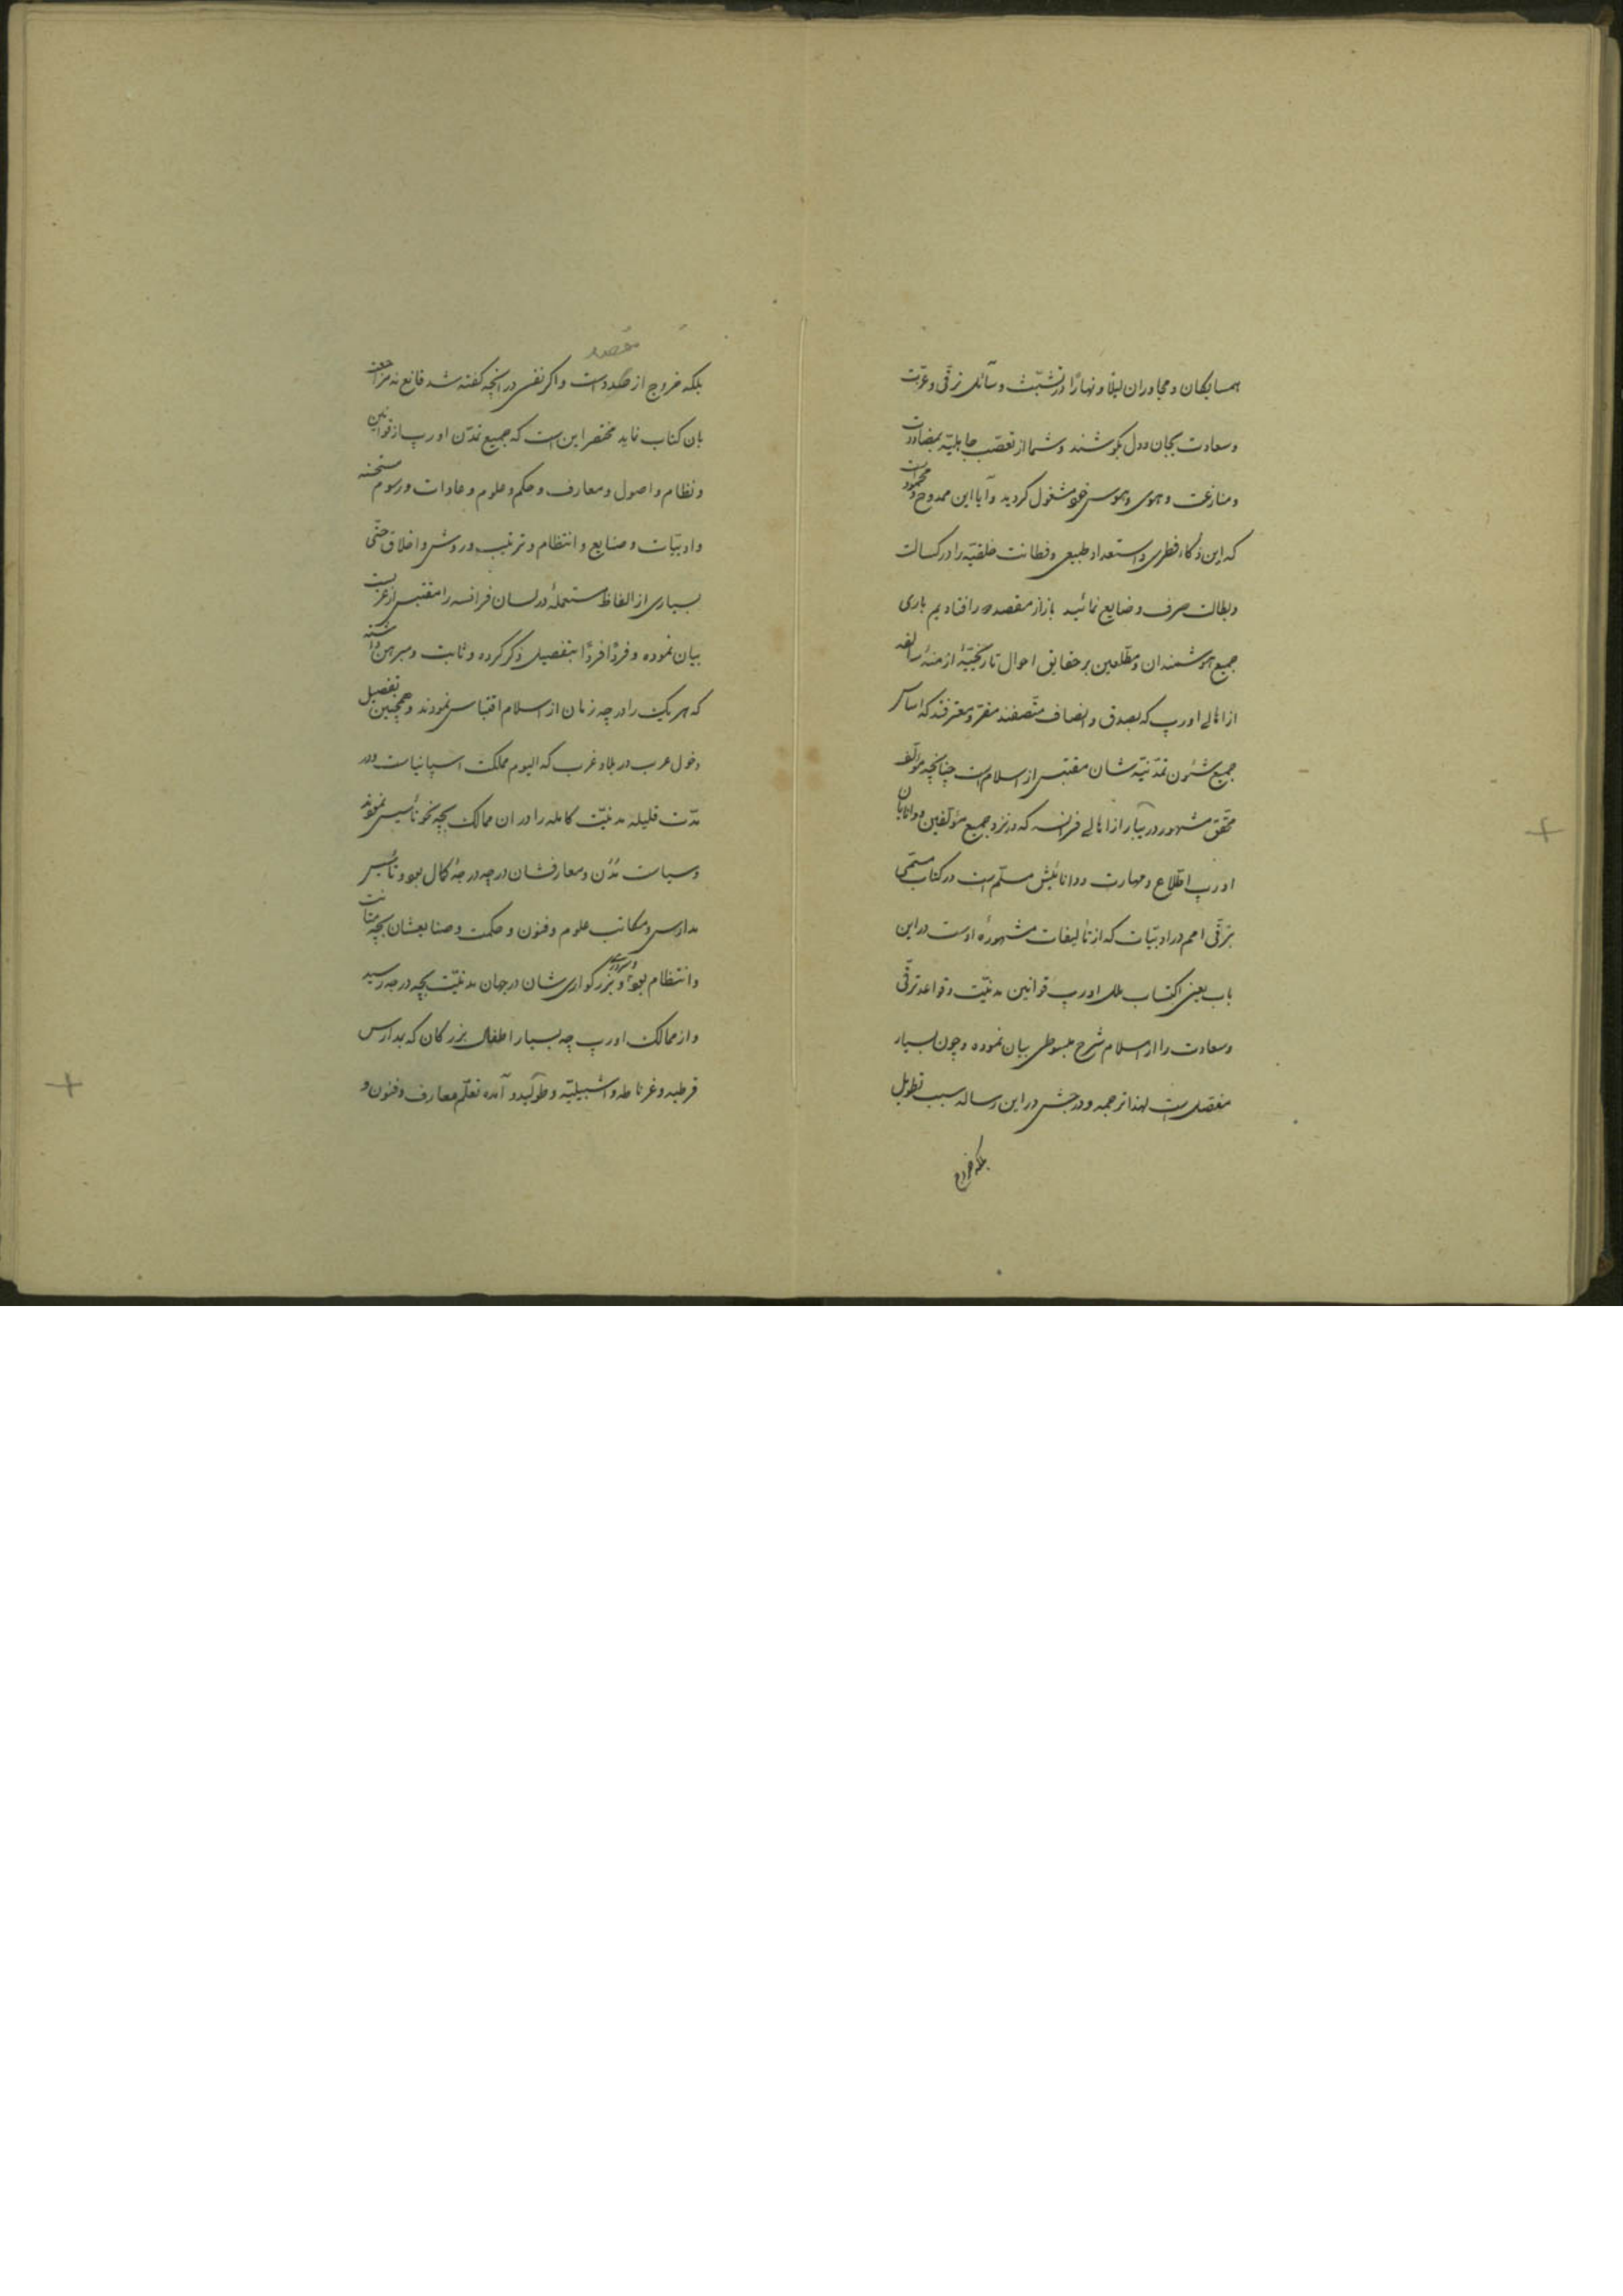 همسایگان و مجاوران لیلاً و نهاراً در تشبّث وسآئل ترقّی و عزّت
و سعادت بجان و دل بکوشند و شما از تعصّب جاهلیّه بمضادّت
و منازعت و هوی و هوس خود مشغول گردید و آیا این ممدوح و محمود است
که این ذکاء فطری و استعداد طبیعی و فطانت خلقیّه را در کسالت
و بطالت صرف و ضایع نمائید باز از مقصد دور افتادیم باری
جمیع هوشمندان و مطّلعین بر حقایق احوال تاریخیّهٔ ازمنهٔ سالفه
از اهالی اورپ که بصدق و انصاف متّصفند مقرّ و معترفند که اساس
جمیع شئون تمدّنیّه‌شان مقتبس از اسلام است چنانچه مؤلّف
محقّق مشهور دریپار از اهالی فرانسه که در نزد جمیع مؤلّفین و دانایان
اورپ اطّلاع و مهارت و دانائیش مسلّم است در کتاب مسمّی
بترقّی امم در ادبیّات که از تألیفات مشهورهٔ اوست در این
باب یعنی اکتساب ملل اورپ قوانین مدنیّت و قواعد ترقّی
و سعادت را از اسلام شرح مبسوطی بیان نموده و چون بسیار
مفصّل است لهذا ترجمه و درجش در این رساله سبب تطویل
بلکه خروج
مقصد
بلکه خروج از صدد است و اگر نفسی در آنچه گفته شد قانع نه مراجعت
بان کتاب نماید مختصر این است که جمیع تمدّن اورپ از قوانین
و نظام و اصول و معارف و حکم و علوم و عادات و رسوم مستحسنه
و ادبیّات و صنایع و انتظام و ترتیب و روش و اخلاق حتّی
بسیاری از الفاظ مستعملهٔ در لسان فرانسه را مقتبس از عرب
بیان نموده و فرداً فرداً بتفصیل ذکر کرده و ثابت و مبرهن داشته
که هر یک را در چه زمان از اسلام اقتباس نمودند و همچنین تفصیل
دخول عرب در بلاد غرب که الیوم مملکت اسپانیاست و در
مدّت قلیله مدنیّت کامله را در ان ممالک بچه نحو تأسیس نمودند
و سیاست مدن و معارفشان در چه درجهٔ کمال بود و تأسیس
مدارس و مکاتب علوم و فنون و حکمت و صنایعشان بچه متانت
و انتظام بود و سروری و بزرگواری‌شان در جهان مدنیّت بچه درجه رسید
و از ممالک اورپ چه بسیار اطفال بزرگان که بمدارس
قرطبه و غرناطه و اشبیلیّه و طولیدو آمده تعلّم معارف و فنون و